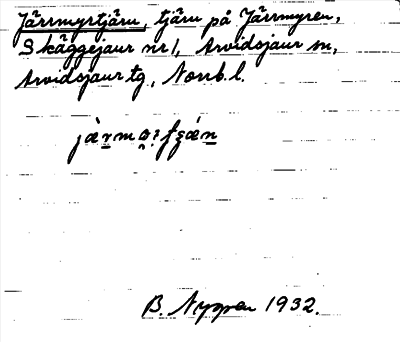 Järrmyrtjärn, tjärn på Järrmyren,
Skäggejaur nr 1, Arvidsjaur sn,
Arvidsjaur tg., Norrb. l.
B. Nyppen 1932.